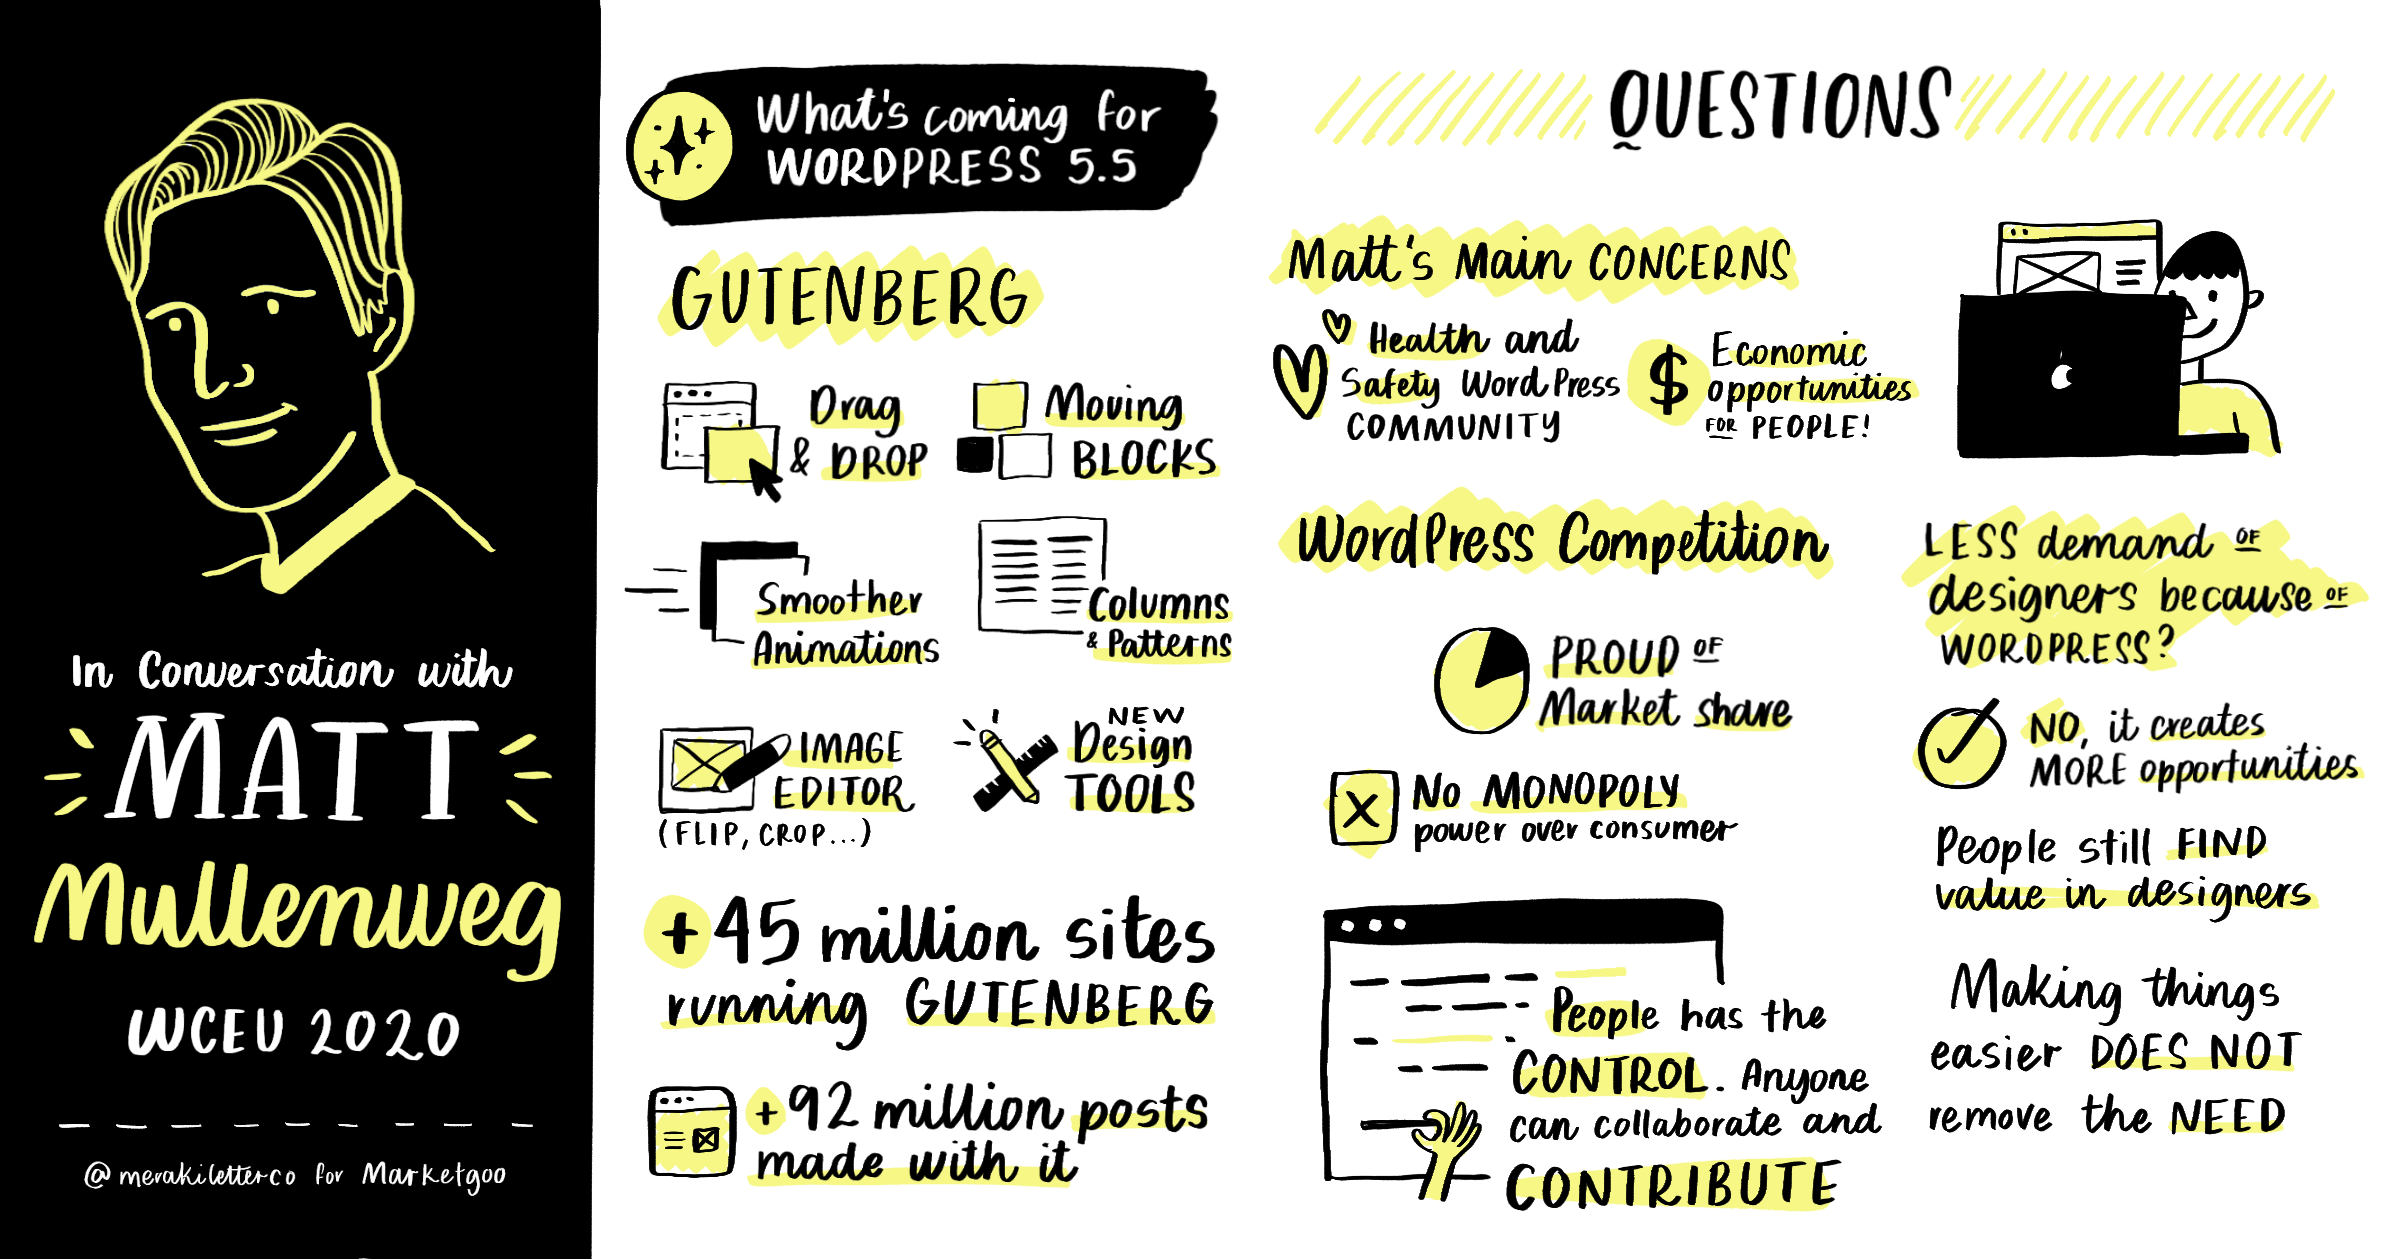 In Conversation with
MATT
Mullenweg
WCEU 2020
@merakiletterco for Marketgoo
What's coming for
WORDPRESS 5.5
GUTENBERG
Drag
& DROP
Moving
BLOCKS
Smoother
Animations
Columns
& Patterns
IMAGE
EDITOR
(FLIP, CROP...)
NEW
Design
TOOLS
+45 million sites
running GUTENBERG
+92 million posts
made with it
QUESTIONS
Matt's Main CONCERNS
Health and
Safety WordPress
COMMUNITY
$
Economic
opportunities
FOR PEOPLE!
WordPress Competition
PROUD OF
Market share
No MONOPOLY
power over consumer
People has the
CONTROL. Anyone
can collaborate and
CONTRIBUTE
LESS demand OF
designers because OF
WORDPRESS?
NO, it creates
MORE opportunities
People still FIND
value in designers
Making things
easier DOES NOT
remove the NEED